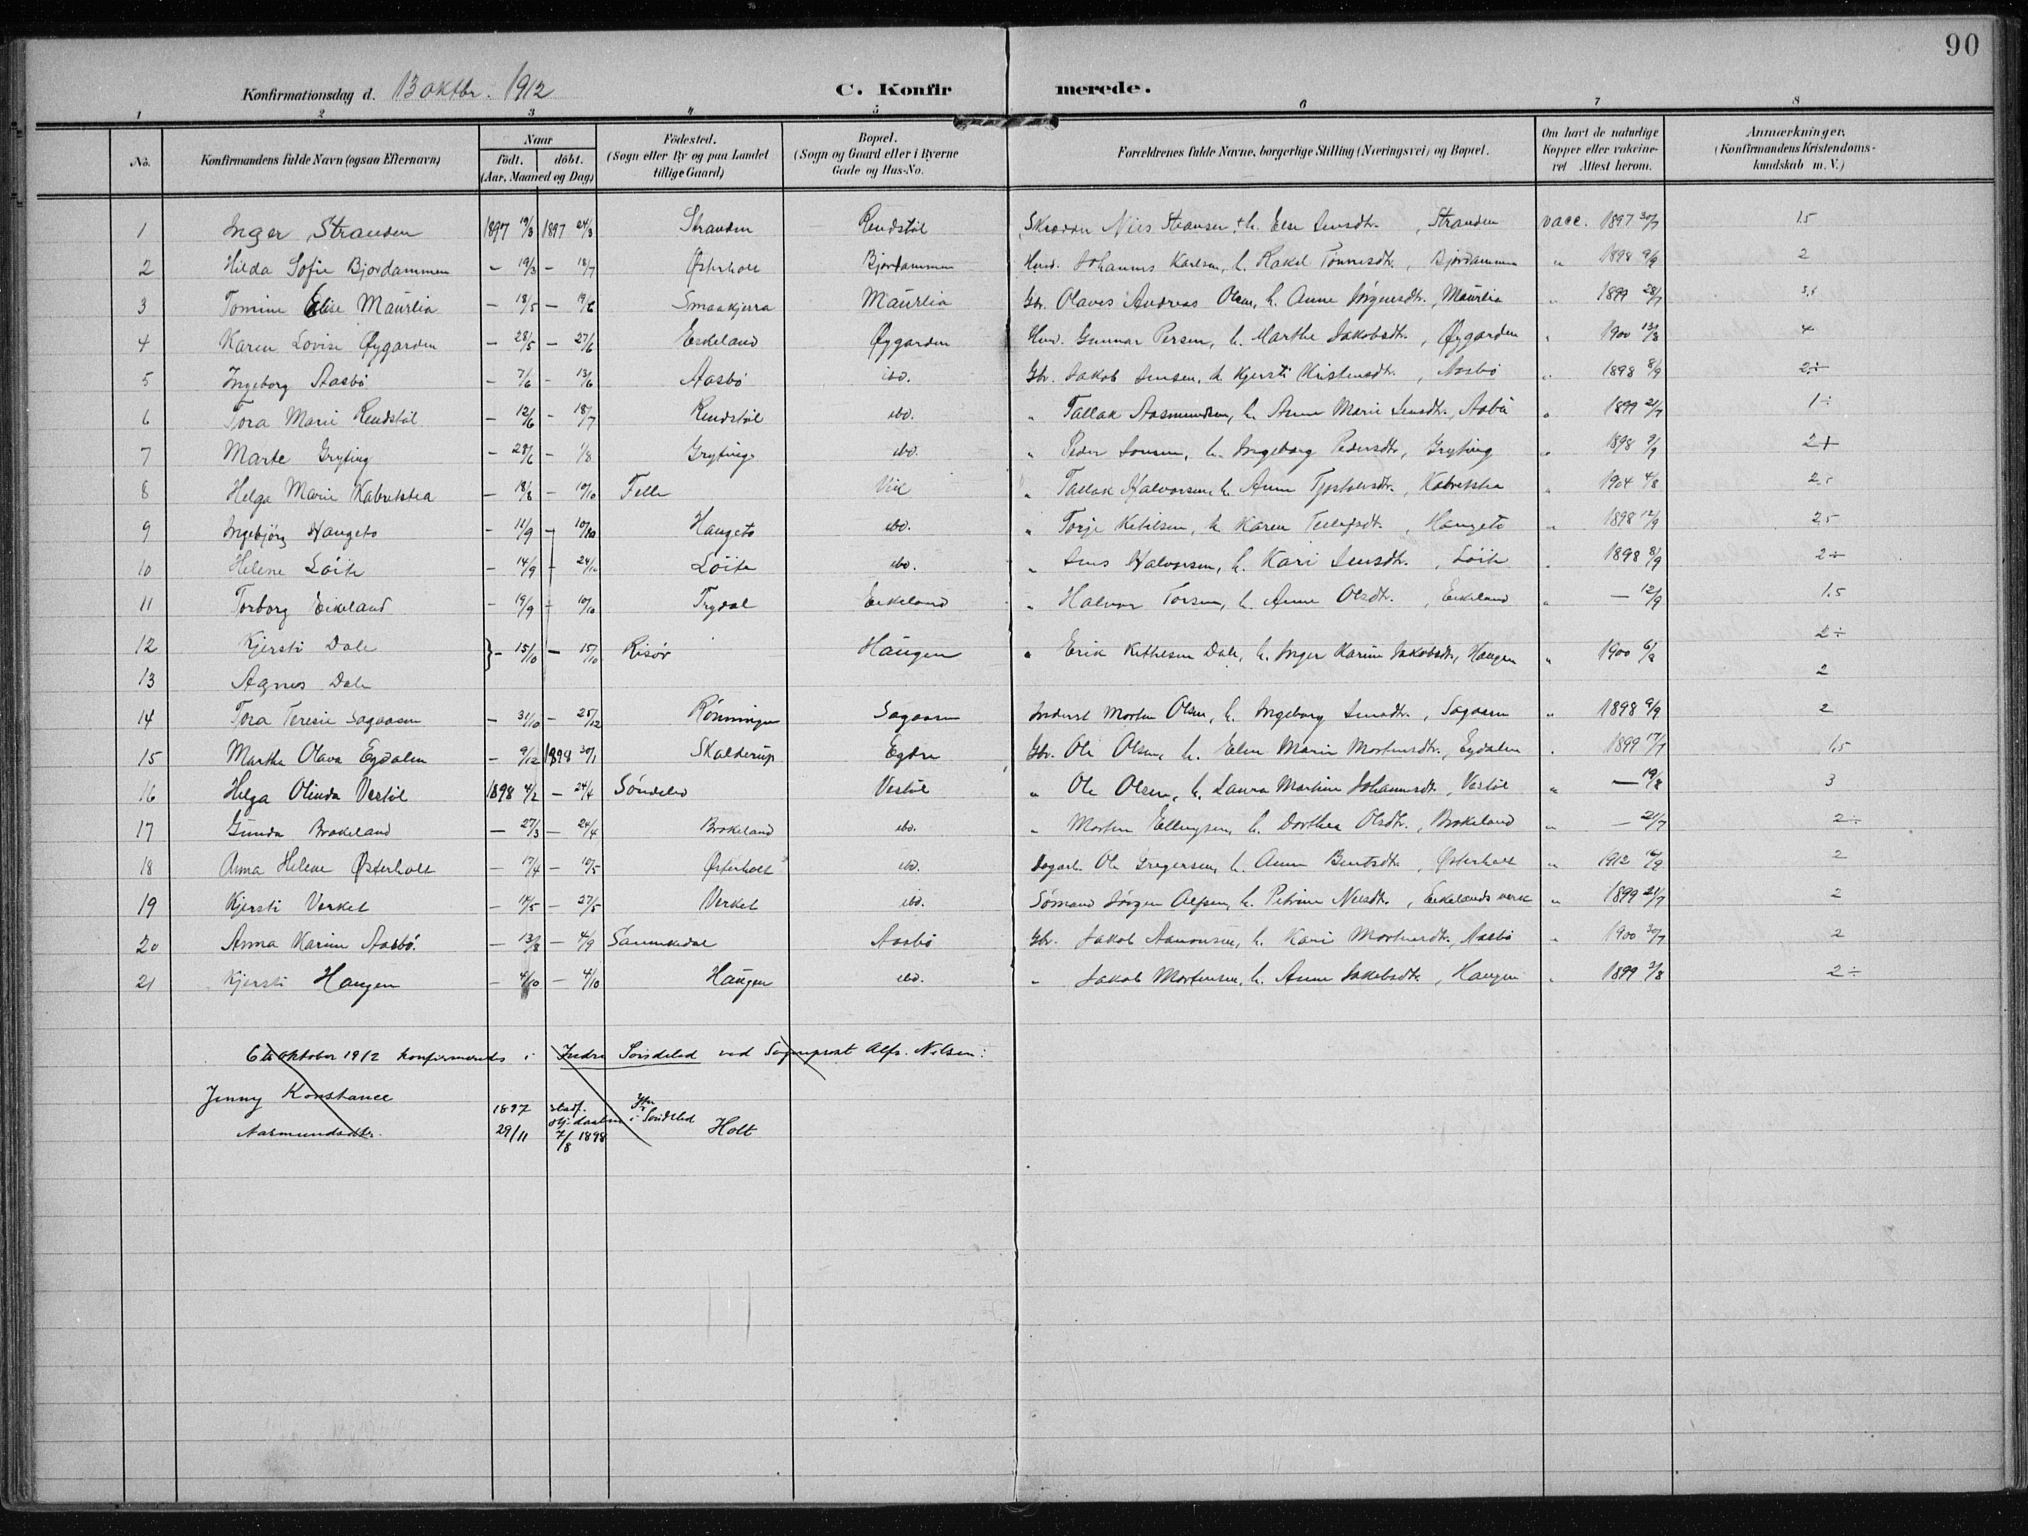 90
Konfirmationsdag d. 13 oktbr. 1912 C. Konfir merede.
1 2 3 4 5 6 7 8
No. Konfirmandens fulde Navn (ogsaa Efternavn) Naar født. døbt. (Aar, Maaned og Dag) Födested. (Sogn eller By og paa Landet tillige Gaard) Bopæl. (Sogn og Gaard eller i Byerne Gade og Hus-No. Forældrenes fulde Navne, borgerlige Stilling (Næringsvei) og Bopæl. Om havt de naturlige Kopper eller vakcineret Attest herom. Anmærkninger. (Konfirmandens Kristendomskundskab m. V.)
1 Inger Stranden 1897 19/3 1897 24/3 Stranden Rendstöl Nils h. Else Jensdtr., Stranden vacc. 1897 30/7 15
2 Hilda Sofie Bjordammen — 19/3 — 18/7 Østerholt Bjordammen Johannes Karlsen, h. Rakel Tönnesdtr., Bjordammen " 1898 9/9 2
3 Tomine Elise Maurlia — 18/5 — 19/6 Smaakjerra Maurlia Gbr. Olaves Andreas Olsen, h. Anne Jörgensdtr., Maurlia " 1899 28/7
4 Karen Lovise Øygarden — 28/5 — 27/6 Eskeland Øygarden Gunnar Persen, h. Marthe Jakobsdtr., Øygarden " 1900 13/8 4
5 Ingeborg Aasbö — 7/6 — 13/6 Aasbö ibd. Gbr. Jakob Jensen, h. Kjersti Kristensdtr., Aasbö " 1898 8/9 2÷
6 Tora Marie Rendstöl — 12/6 — 18/7 Rendstöl ibd. " Tallak Aasmundsen, h. Anne Marie Jensdtr., " 1899 21/7 1÷
7 Marte Gryting — 28/6 — 1/8 Gryting ibd. " Peder Jonsen, h. Ingeborg Pedersdtr., Gryting " 1898 9/9 2+
8 Helga Marie — 18/8 — 10/10 Felle " Tallak Halvorsen, h. Anne " 1904 4/8 2,5
9 Ingebjörg Haugeto — 11/9 — 10/10 Haugeto ibd. " Torje Ketilsen, h. Karen Haugeto " 1898 12/9 2,5
10 Helene Löite — 14/9 — 24/10 Löite ibd. " Jens Halvorsen, h. Kari Jensdtr., Löite " 1898 8/9 2÷
11 Torborg Eikeland — 19/9 — 10/10 Trydal Eikeland " Halvor Torsen, h. Anne Olsdtr., Eikeland " — 12/9 1,5
12 Kjersti Dale } — 15/10 — 15/10 Risør Haugen " Erik Kethlsen Dale, h. Inger Karine Jakobsdtr., Haugen " 1900 6/8 2÷
13 Agnes Dale 2
14 Tora Teresie Sagaasen — 31/10 — 25/12 Rönningen Sagaasen Inderst Morten Olsen, h. Ingeborg Jensdtr., Sagaasen " 1898 9/9 2
15 Marthe Olava Egdalen — 9/12 1898 30/1 Skalderup Gbr. Ole Olsen, h. Elen Marie Mortensdtr., Egdalen " 1899 17/7 1,5
16 Helga Olinda Vestöl 1898 4/2 — 24/4 Söndeled Vestöl " Ole Olsen, h. Laura Martine Johannesdtr., Vestöl " — 19/8 3
17 Gunda Brokeland — 27/3 — 24/4 Brokeland ibd. " Morten Ellingsen, h. Dorthea Olsdtr., Brokeland " — 21/7 2÷
18 Anna Helene Østerholt — 17/4 — 10/5 Østerholt ibd. Dagarb. Ole Gregersen, h. Anne Bentsdtr., Østerholt " 1912 16/9 2
19 Kjersti Verket — 14/5 — 27/5 Verket ibd. Sömand Jörgen Alfsen, h. Petrine Nilsdtr., Eikelands verk " 1899 21/7 2
20 Anna Karine Aasbö. — 13/8 — 4/9 Sannikedal Aasbö Gbr. Jakob Aanonsen, h. Kari Mortensdtr., Aasbö " 1900 30/7 2
21 Kjersti Haugen — 4/10 — 4/10 Haugen ibd. " Jakob Mortensen, h. Anne Jakobsdtr., Haugen " 1899 3/8 2÷
6te oktober 1912 konfirmeredes i Indre Söndeled ved Sogneprest Alfr. Nilsen:
Jenny Konstance
Aasmundsdtr. 1897 29/11 stadf. hj. daaben 7/8 1898 Ytre i Söndeled Holt